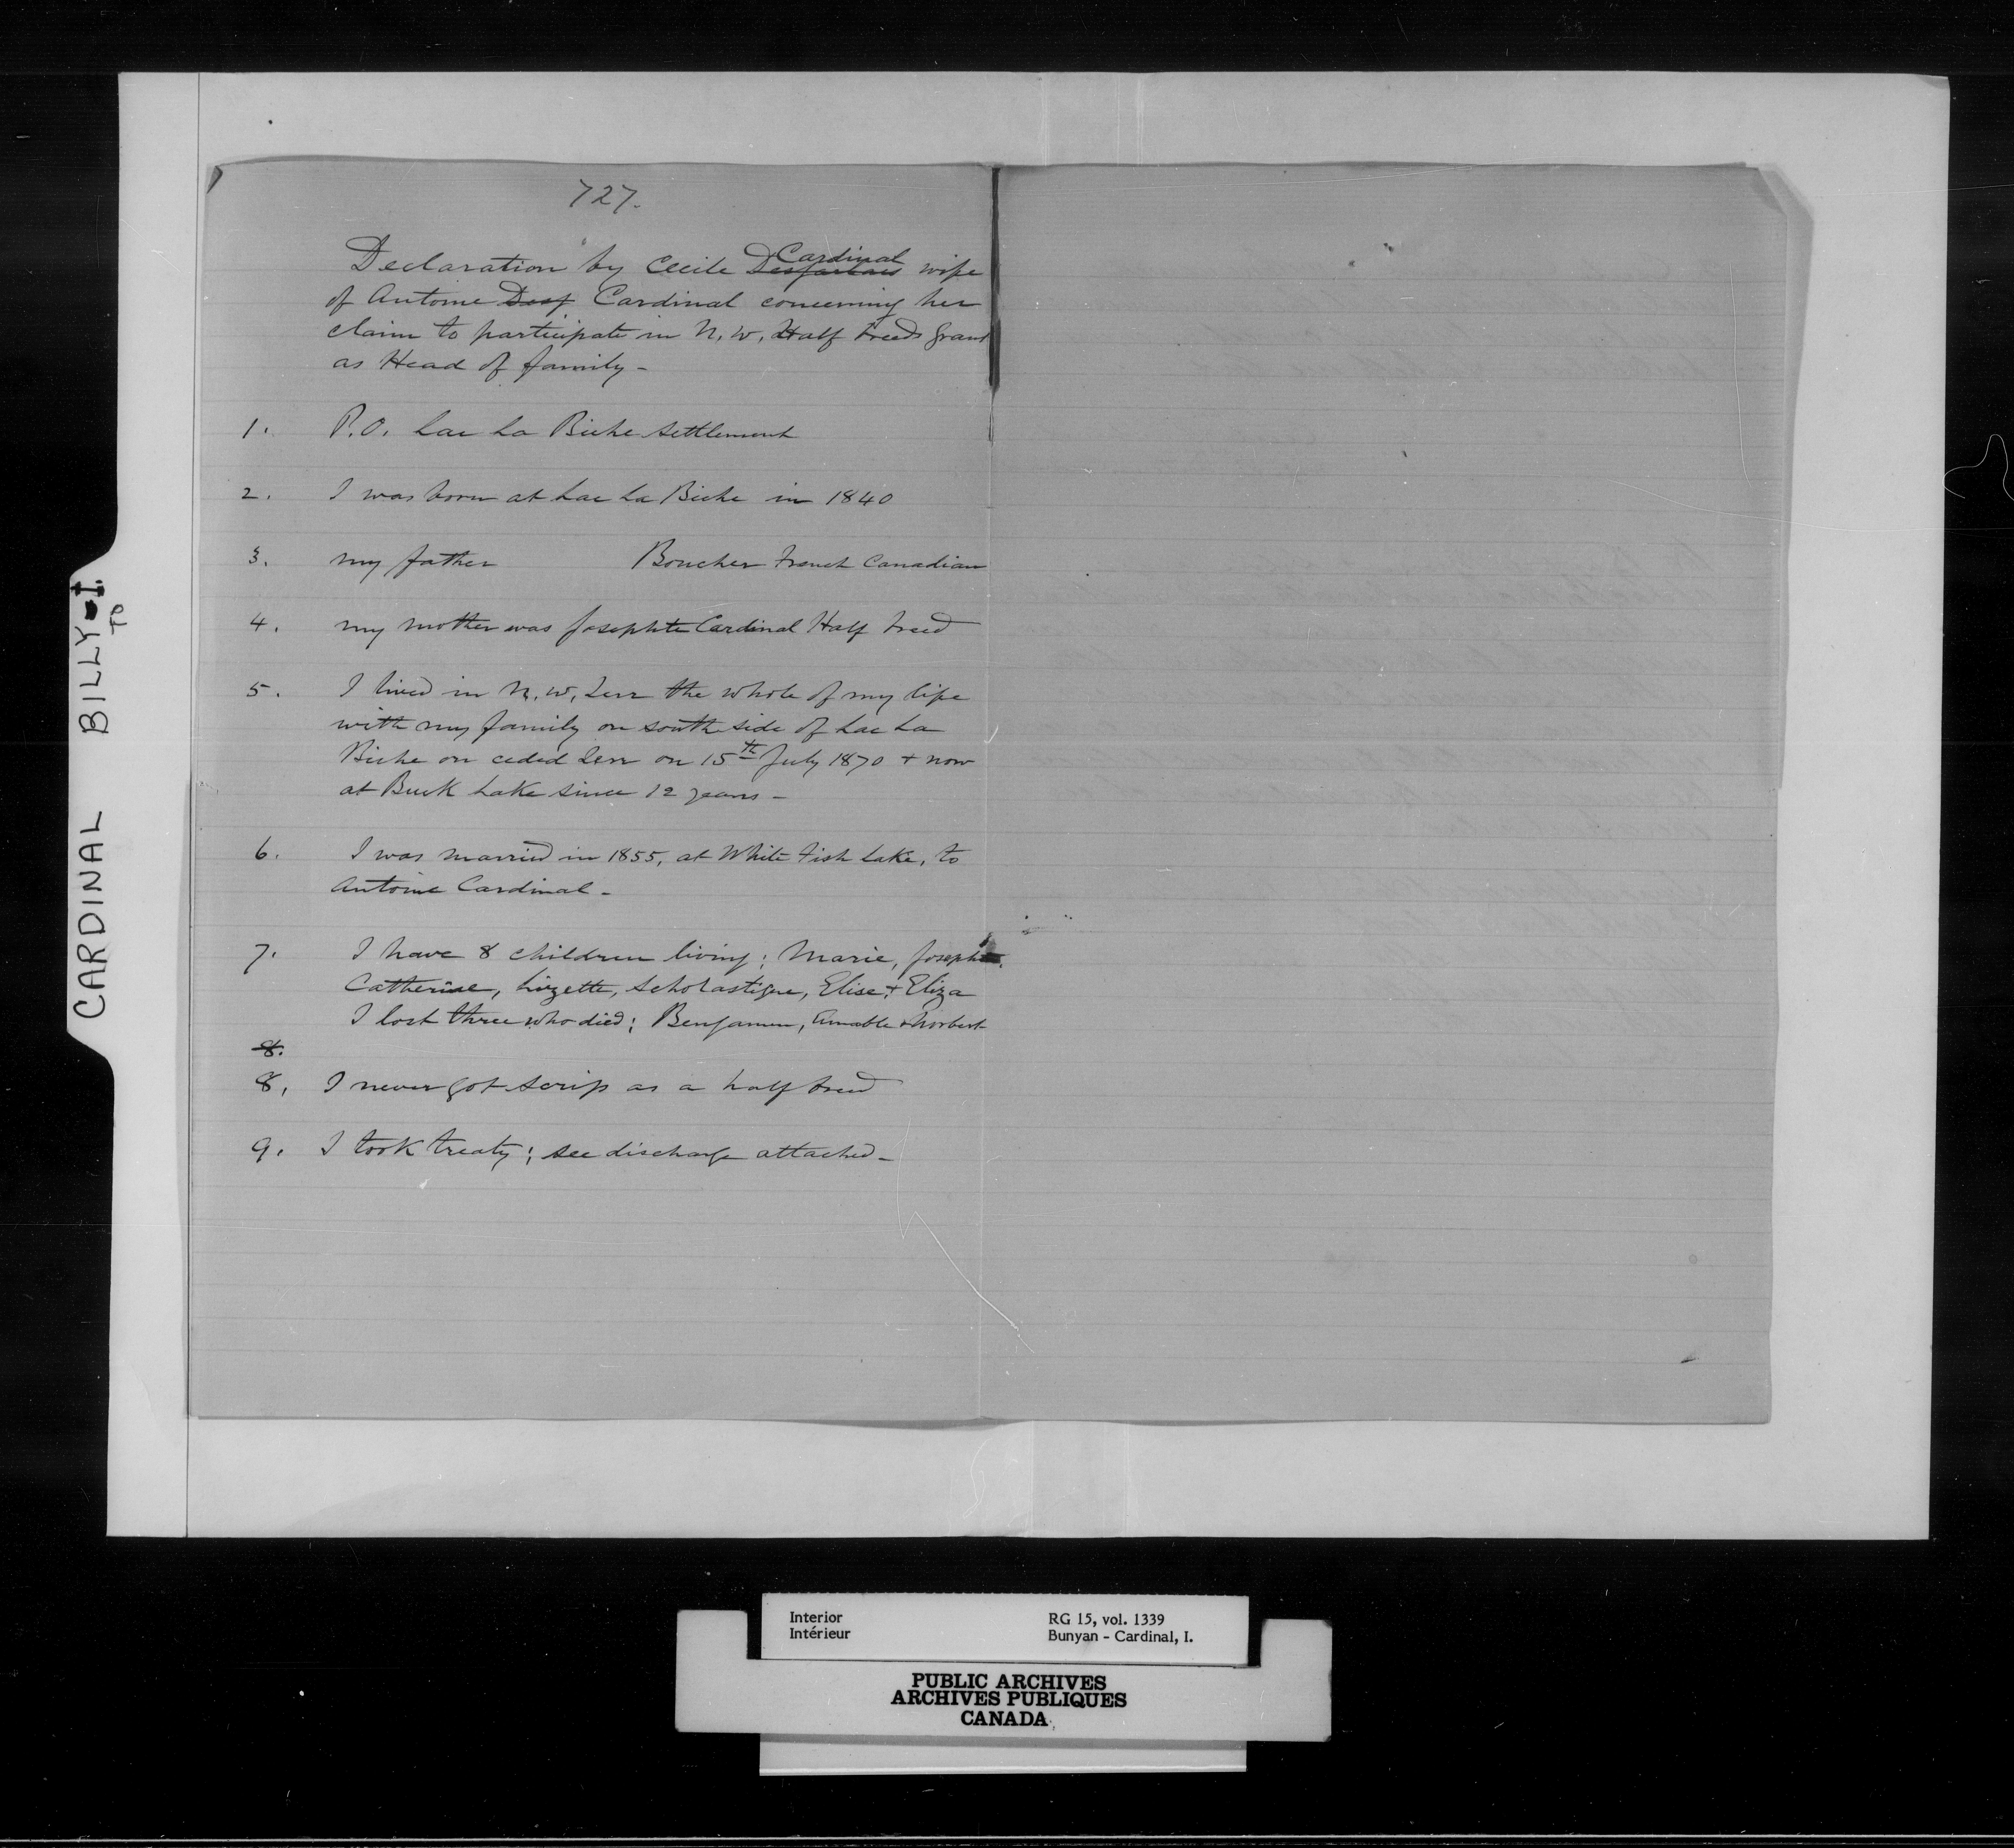 727.
Declaration by Cecile Desjarlais Cardinal wife
of Antoine Desj Cardinal concerning her
claim to participate in N. W. Half breeds grant
as Head of family -
1. P.O. Lac La Biche settlement
2. I was born at Lac La Biche in 1840
3. my father Boucher French Canadian
4. my mother was Josephte Cardinal Half breed
5. I lived in N. W. Terr the whole of my life
with my family on south side of Lac La
Biche on ceded Terr on 15th July 1870 + now
at Buck Lake since 12 years -
6. I was married in 1855, at White Fish Lake, to
Antoine Cardinal -
7. I have 8 children living; Marie, Joseph
Catherine, Lizette, Scholastique, Elise, + Eliza
I lost three who died; Benjamin, Amable & Norbert
8.
8. I never got scrip as a half breed
9. I took treaty; see discharge attached -
CARDINAL BILLY - I.
TO
Interior
Intérieur
RG 15, vol. 1339
Bunyan - Cardinal, I.
PUBLIC ARCHIVES
ARCHIVES PUBLIQUES
CANADA